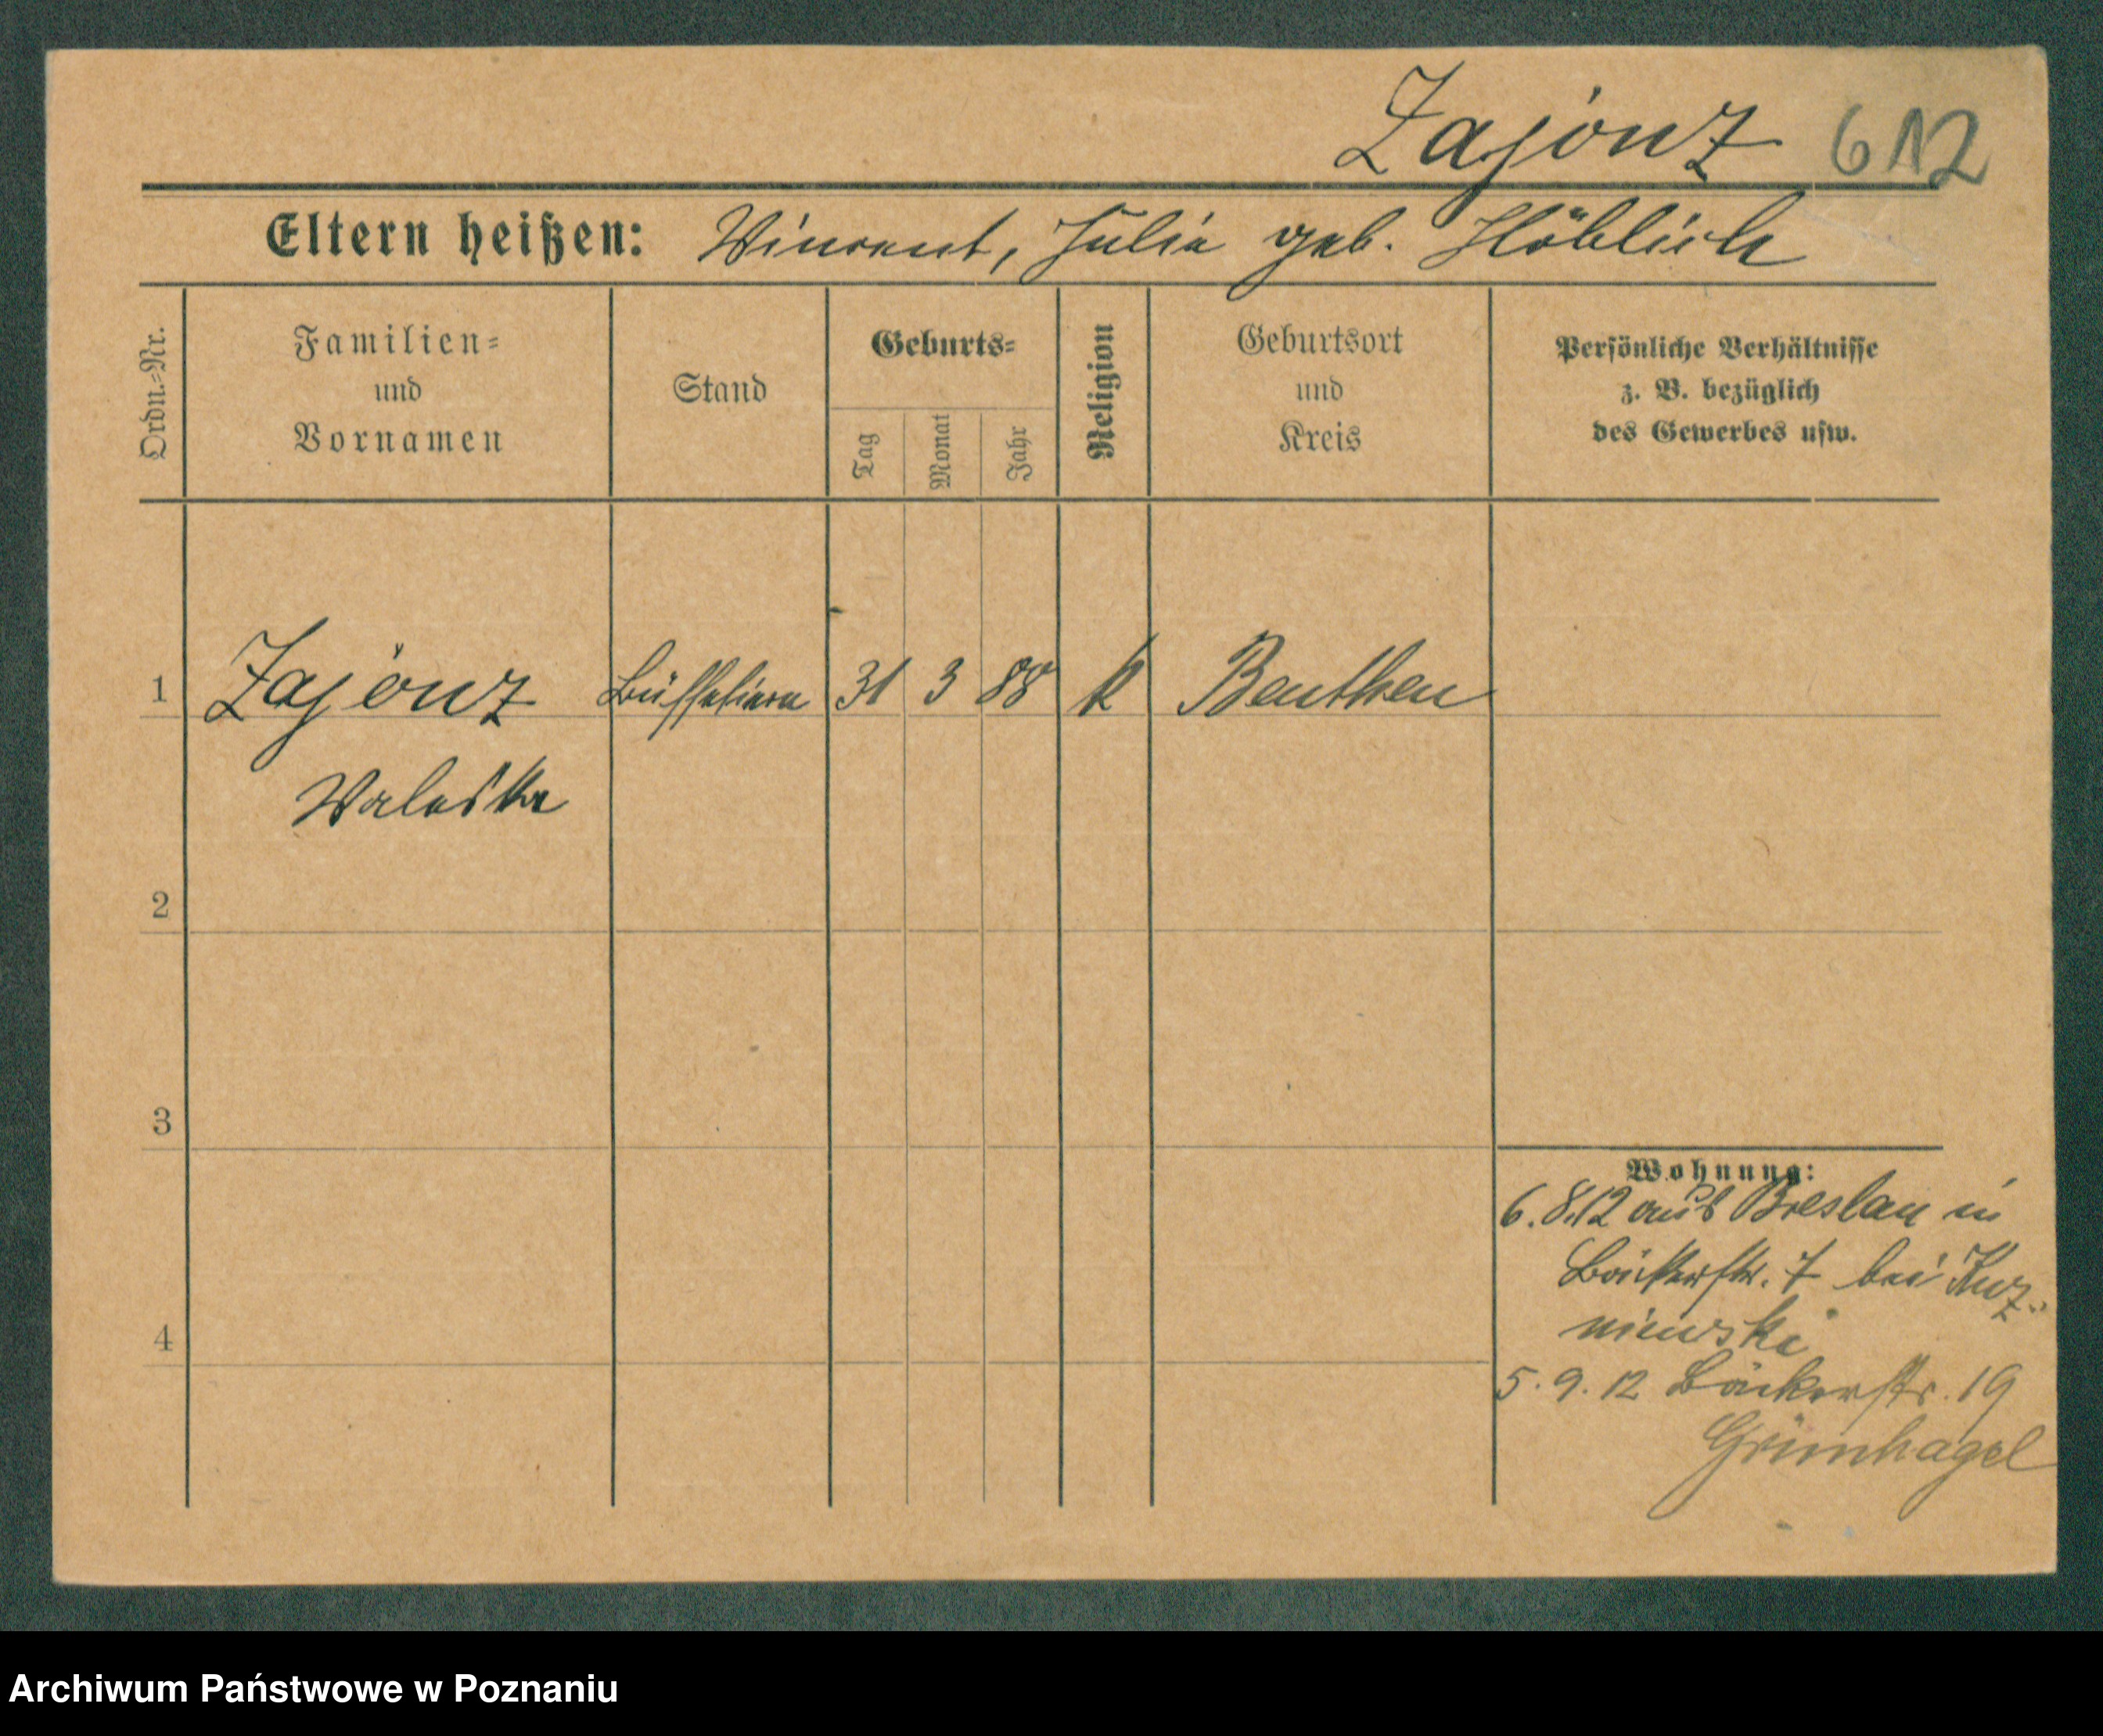 Zajonz 612
Eltern heißen: Vincent, Julie geb. Höblich
Ordn.-Nr.
Familien-
und
Vornamen
Stand
Geburts-
Tag
Monat
Jahr
Religion
Geburtsort
und
Kreis
Persönliche Verhältnisse
z. B. bezüglich
des Gewerbes usw.
1 Zajonz Büffetiere 31 3 88 k Beuthen
Waleska
2
3
4
Wohnung:
6.8.12 aus Breslau in
Bäckerstr. 7 bei Kuz-
niewski
5.9.12 Bäckerstr. 19
Grünhagel
Archiwum Państwowe w Poznaniu